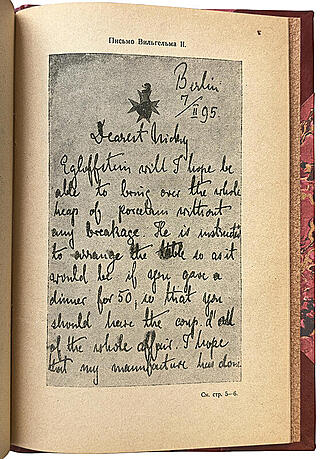 Письмо Вильгельма II.
Berlin
7/II 95
Dearest Nicky
Egloffstein will I hope be
able to bring over the whole
heap of porcelain without
any breakage. He is instructed
to arrange the table so as it
would be if you gave a
dinner for 50; so that you
should have the coup d'œil
of the whole affair. I hope
that my manufacture has done
См. стр. 5—6.